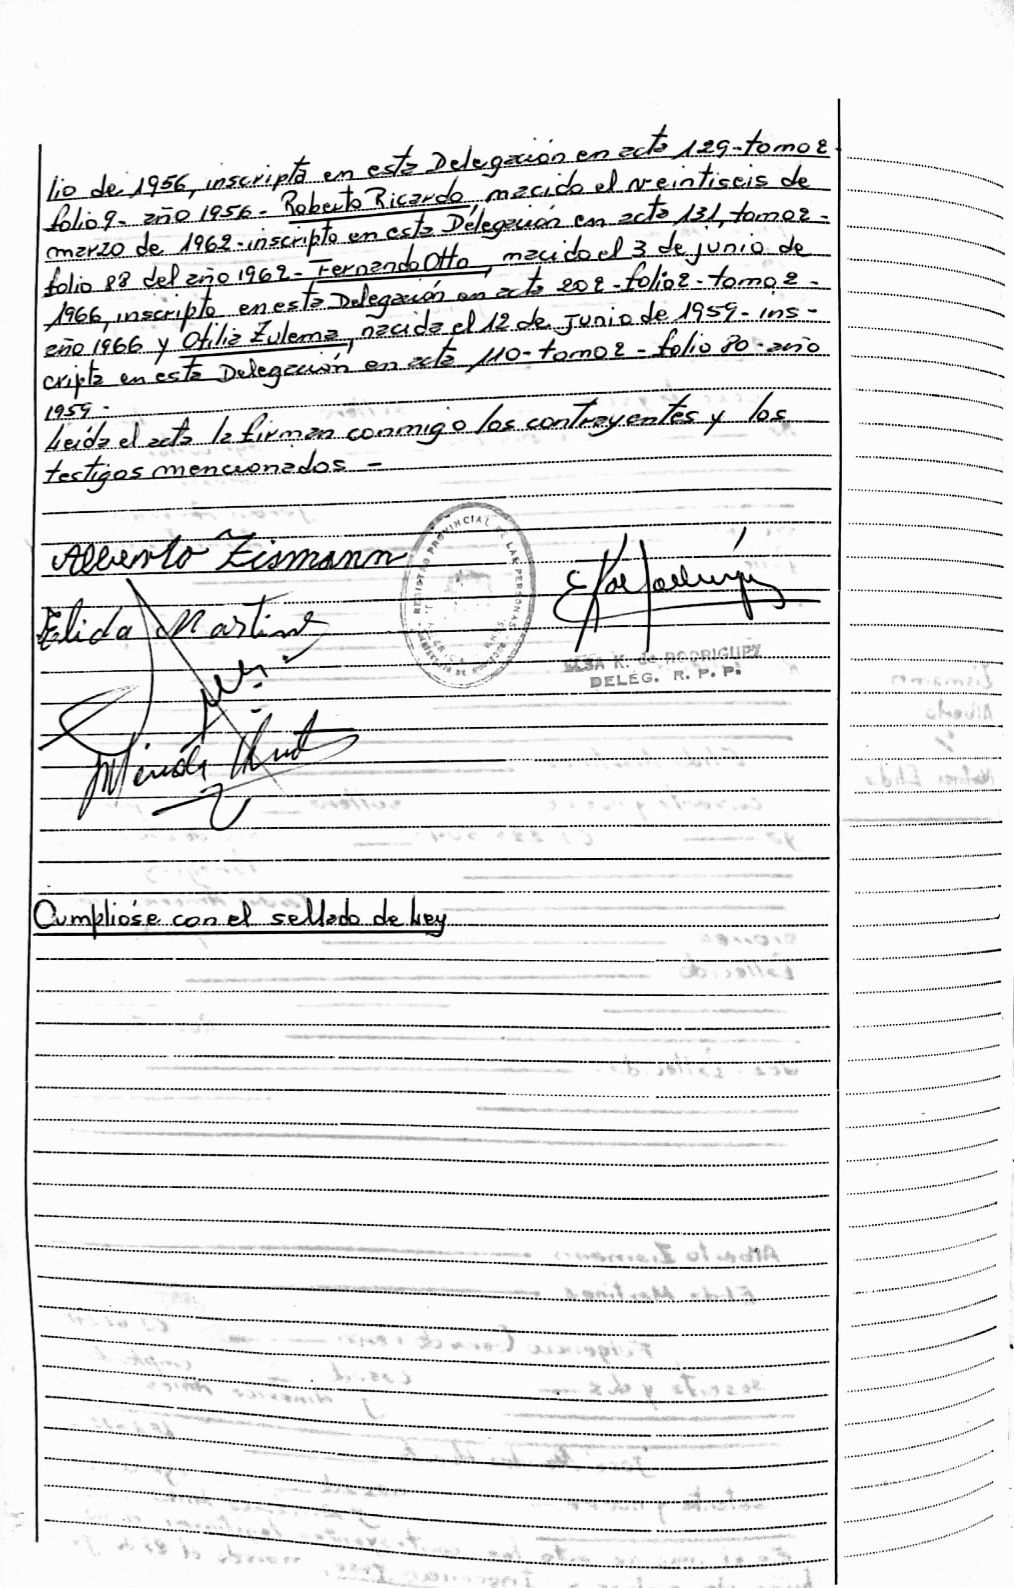 lio de 1956, inscripta en esta Delegación en acta 129-tomo 2
folio 9- año 1956- Roberto Ricardo, nacido el veintiseis de
marzo de 1962-inscripto en esta Delegación en acta 131, tomo 2-
folio 88 del año 1962- Fernando Otto, nacido el 3 de junio de
1966, inscripto en esta Delegación en acta 202-folio 2-tomo 2-
año 1966 y Otilia Zulema, nacida el 12 de junio de 1959- ins-
cripta en esta Delegación en acta 110-tomo 2- folio 80- año
1959-
Leída el acta la firman conmigo los contrayentes y los
testigos mencionados -
Alberto Zismann
REGISTRO PROVINCIAL DE LAS PERSONAS
Elida Martinez
ELSA K. de RODRIGUEZ
DELEG. R. P. P.
Cumplióse con el sellado de Ley